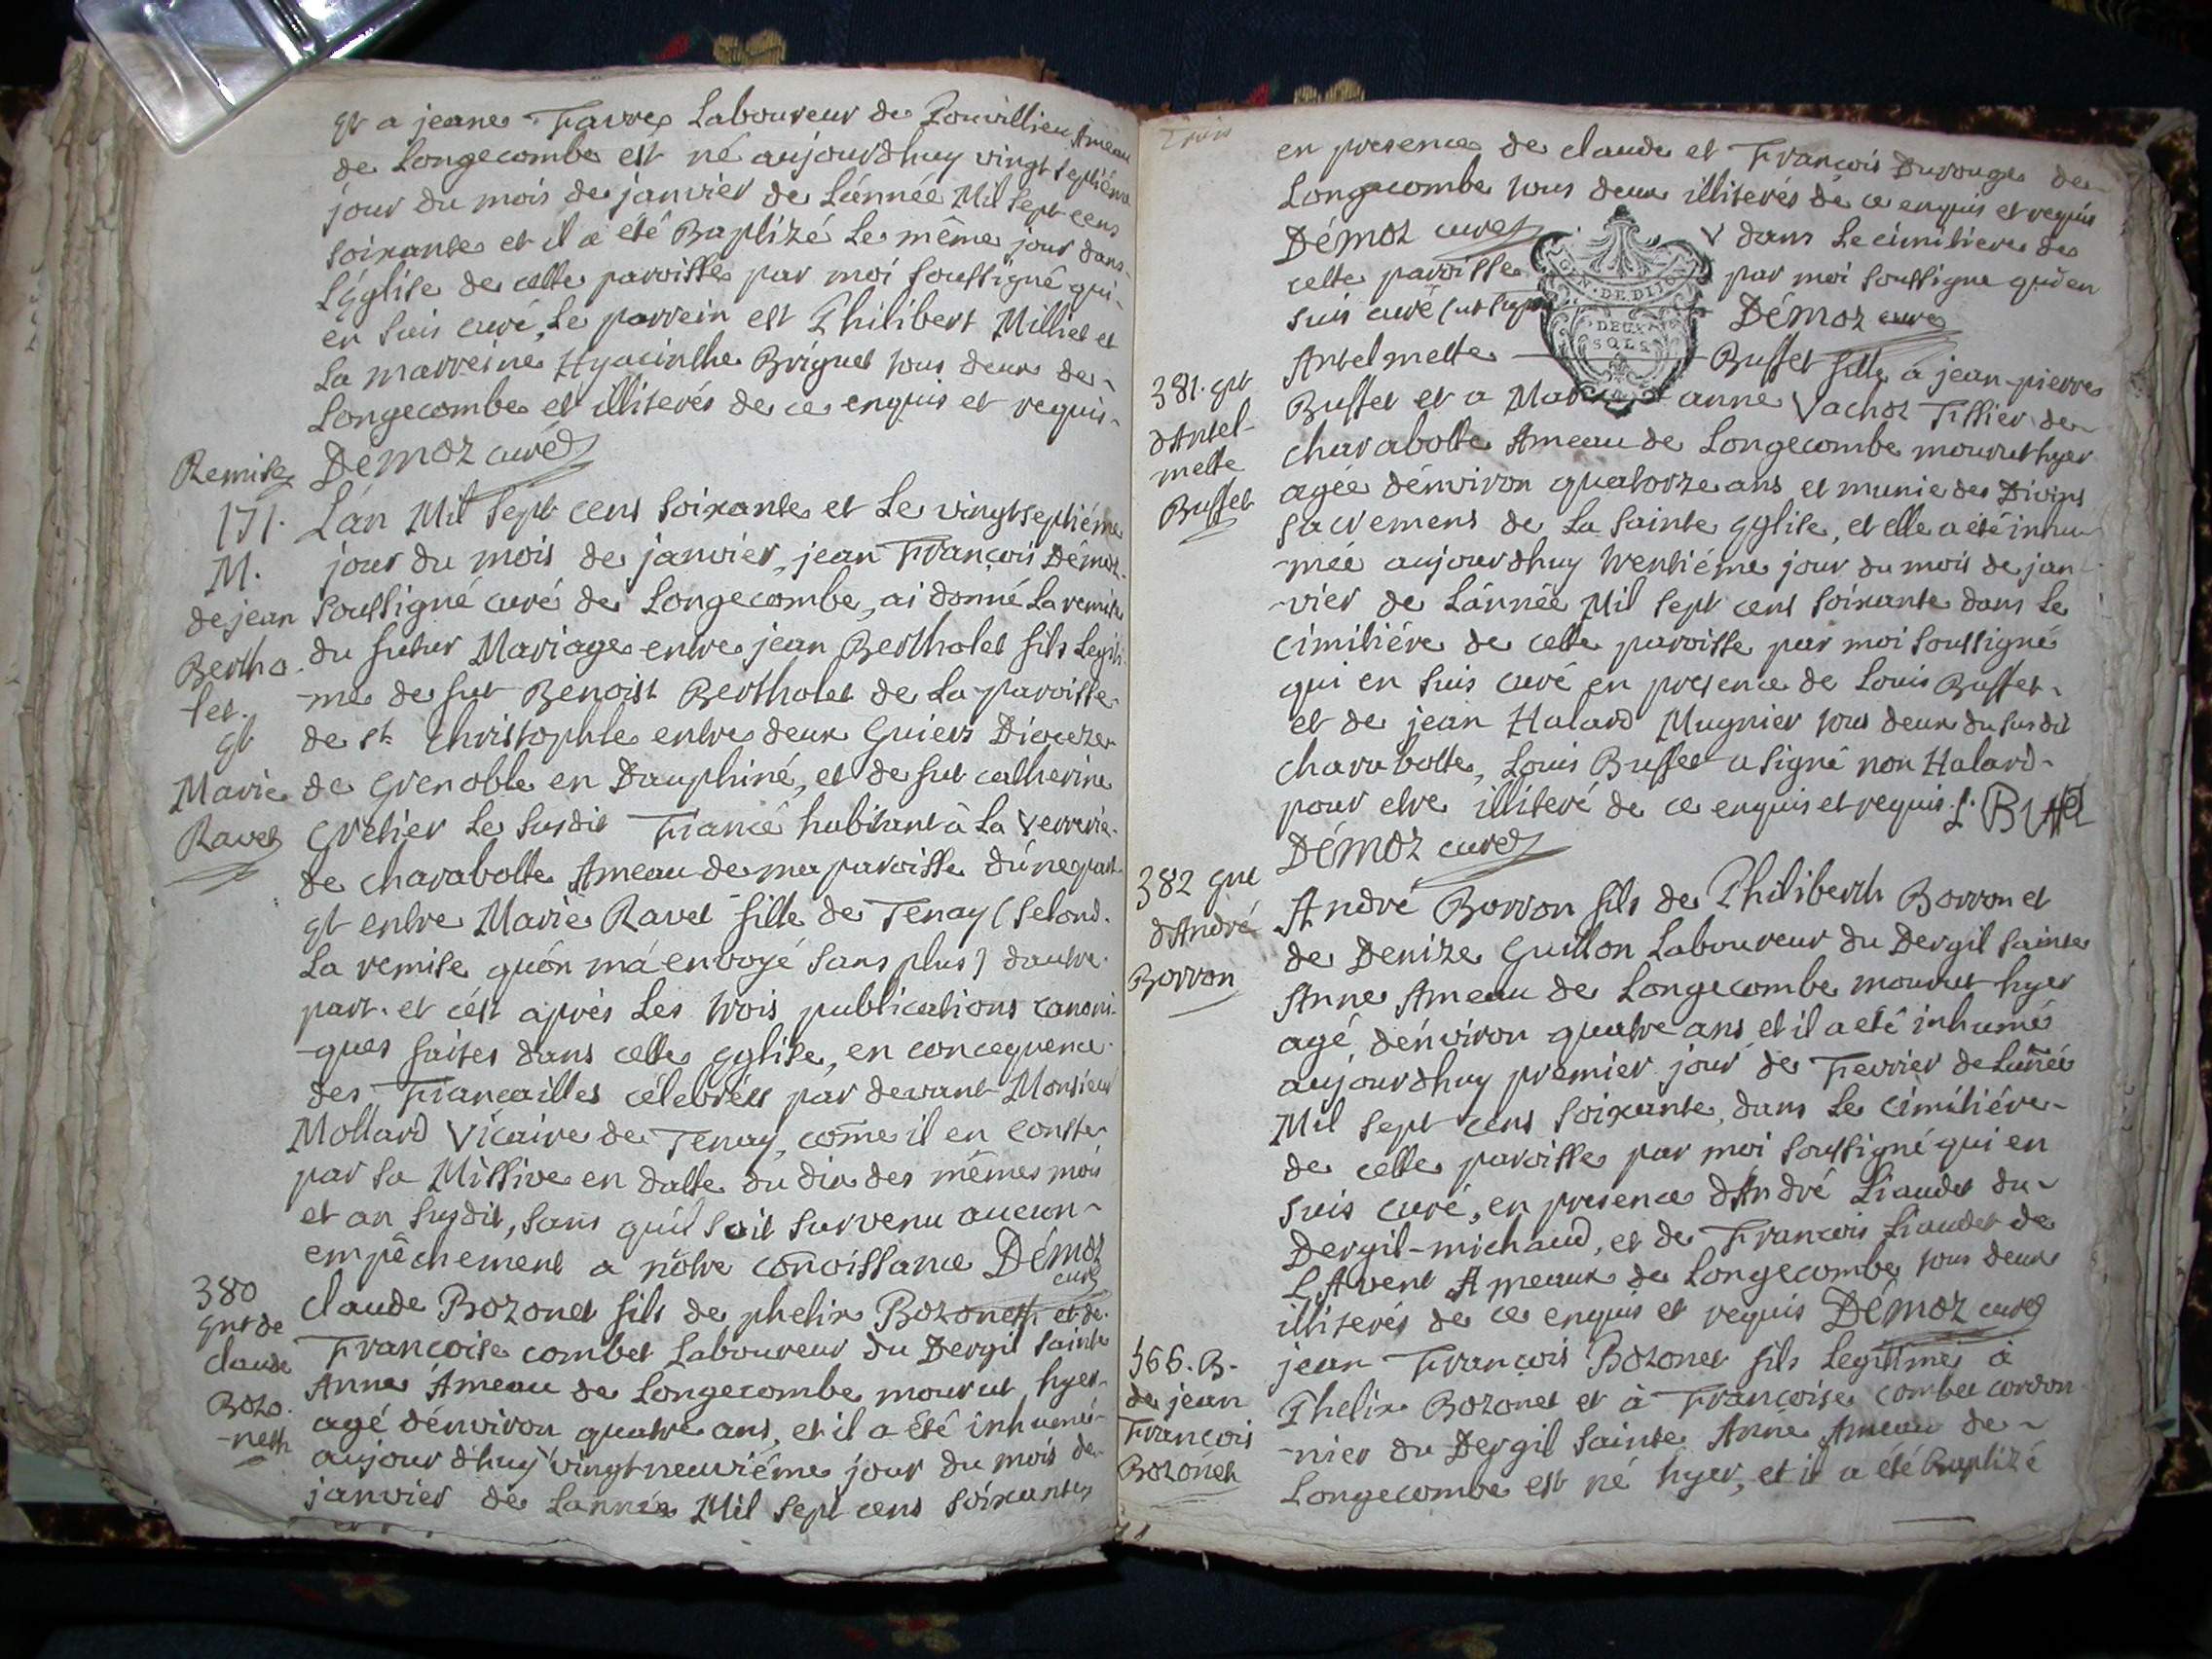 et a jeane Favre Laboureur de Rouvillieu Ameau
de Longecombe est né aujourdhuy vingt septiéme
jour du mois de janvier de Lánnée Mil sept cens
soixante et il a été Baptizé Le même jour dans
L'église de cette paroisse par moi soussigné qui
en suis curé, Le parrein est Philibert Milliet et
La marreine Hyacinthe Briguet tous deux de
Longecombe et illiterés de ce enquis et requis
Démoz curé
Remise
171.
M.
de jean
Bertho
let.
et
Marie
Ravet
Lán Mil sept cens soixante et Le vingtseptiéme
jour du mois de janvier, jean François Démoz
soussigné curé de Longecombe, ai donné La remise
du futur Mariage entre jean Bertholet fils Legiti
-me de fut Benoist Bertholet de La paroisse
de st. Christophle entre deux Guiers Dioceze
de Grenoble en Dauphiné, et de fut catherine
Gretier Le susdit Fiancé habitant à La Verrerie
de charabotte Ameau de ma paroisse dúne part
et entre Marie Ravet fille de Tenay (selond
La remise quón má envoyé sans plus) dautre
part. et cést aprés Les trois publications canoni
-ques faites dans cette Eglise, en concequence
des Fiancailles célebrées par devant Monsieur
Mollard Vicaire de Tenay, come il en conste
par sa Missive en datte du dix des mêmes mois
et an susdit, sans quil soit survenu aucun
empêchement a nôtre conoissance Démoz
curé
380
ent de
claude
Bozo
-neth
claude Bozonet fils de phelix Bozoneth et de
Francoise combet Laboureur du Dergil sainte
Anne Ameau de Longecombe mourut hyer
agé dénviron quatre ans, et il a été inhumé
aujourdhuy vingtneuviéme jour du mois de
janvier de Lannée Mil sept cens soixante
en presence de claude et François Durouge de
Longecombe tous deux illiterés de ce enquis et requis
Démoz curé
V dans Le cimitiere de
cette paroisse
par moi soussigne qui en
suis curé
Démoz curé
GEN. DE DIJON
DEUX
SOLS
381. ent
dAntel-
mette
Buffet
Antelmette Buffet fille à jean-pierre
Buffet et a Marianne Vachoz Tissier de
charabotte Ameau de Longecombe mourut hyer
agée dénviron quatorze ans et munie des Divins
sacremens de La sainte Eglise, et elle a été inhu
-mée aujourdhuy trentiéme jour du mois de jan
-vier de Lánnée Mil sept cens soixante dans Le
cimitiére de cette paroisse par moi soussigné
qui en suis curé en presence de Louis Buffet
et de jean Halard Mugnier tous deux du susdit
charabotte, Louis Buffet a signé non Halard
pour etre illiteré de ce enquis et requis. L. Buffet
Démoz curé
382 ent
dAndré
Borron
André Borron fils de Philiberth Borron et
de Denize Guillon Laboureur du Dergil sainte
Anne Ameau de Longecombe mourut hyer
agé dénviron quatre ans et il a été inhumé
aujourdhuy premier jour de Fevrier de Lánnée
Mil sept cens soixante, dans Le cimitiére
de cette paroisse par moi soussigné qui en
suis curé, en presence dAndré Liaudet du
Dergil-michaud, et de Francois Liaudet de
LAvent Ameaux de Longecombe tous deux
illiterés de ce enquis et requis Démoz curé
366. B.
de jean
Francois
Bozoneth
jean François Bozonet fils Legitime à
Phelix Bozonet et à Françoise combet cordon
-nier du Dergil sainte Anne Ameau de
Longecombe est né hyer, et il a été Baptizé